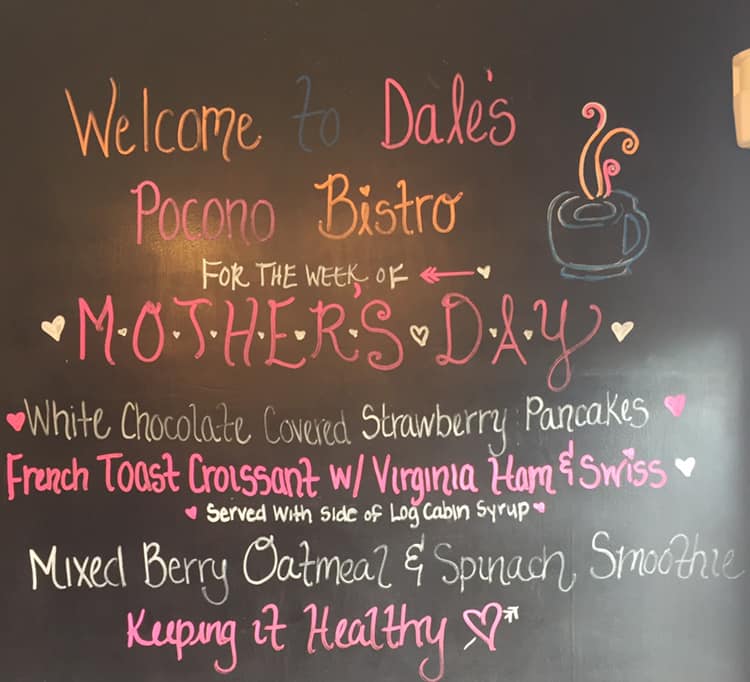 Welcome to Dale's
Pocono Bistro
FOR THE WEEK OF
MOTHER'S DAY
White Chocolate Covered Strawberry Pancakes
French Toast Croissant w/ Virginia Ham & Swiss
Served With Side of Log Cabin Syrup
Mixed Berry Oatmeal & Spinach Smoothie
Keeping it Healthy